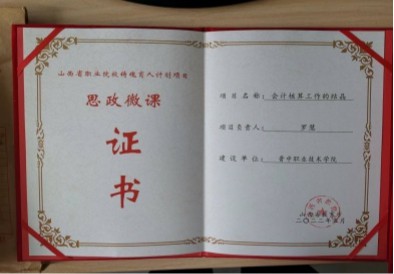 山西省职业院校特殊育人计划项目
思政微课
证
书
项目名称：会计核算工作的结晶
项目负责人：罗慧
建设单位：晋中职业技术学院
山西省教育厅
二〇二二年五月